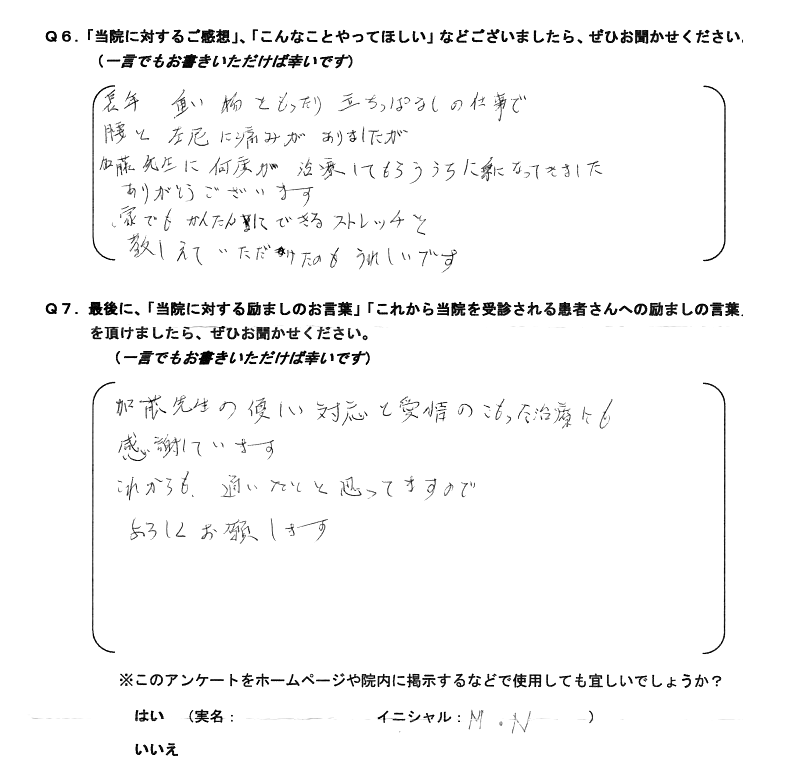 Q6.「当院に対するご感想」、「こんなことやってほしい」などございましたら、ぜひお聞かせください。
(一言でもお書きいただけば幸いです)
長年 重い物をもったり 立ちっぱなしの仕事で
腰と左足に痛みがありましたが
加藤先生に何度か治療してもらううちに楽になってきました
ありがとうございます
家でもかんたんにできるストレッチを
教しえていただけたのもうれしいです
Q7.最後に、「当院に対する励ましのお言葉」「これから当院を受診される患者さんへの励ましの言葉
を頂けましたら、ぜひお聞かせください。
(一言でもお書きいただけば幸いです)
加藤先生の優しい対応と愛情のこもった治療にも
感謝しています
これからも、通いたいと思ってますので
よろしくお願します
※このアンケートをホームページや院内に掲示するなどで使用しても宜しいでしょうか?
はい (実名: イニシャル:M.N )
いいえ